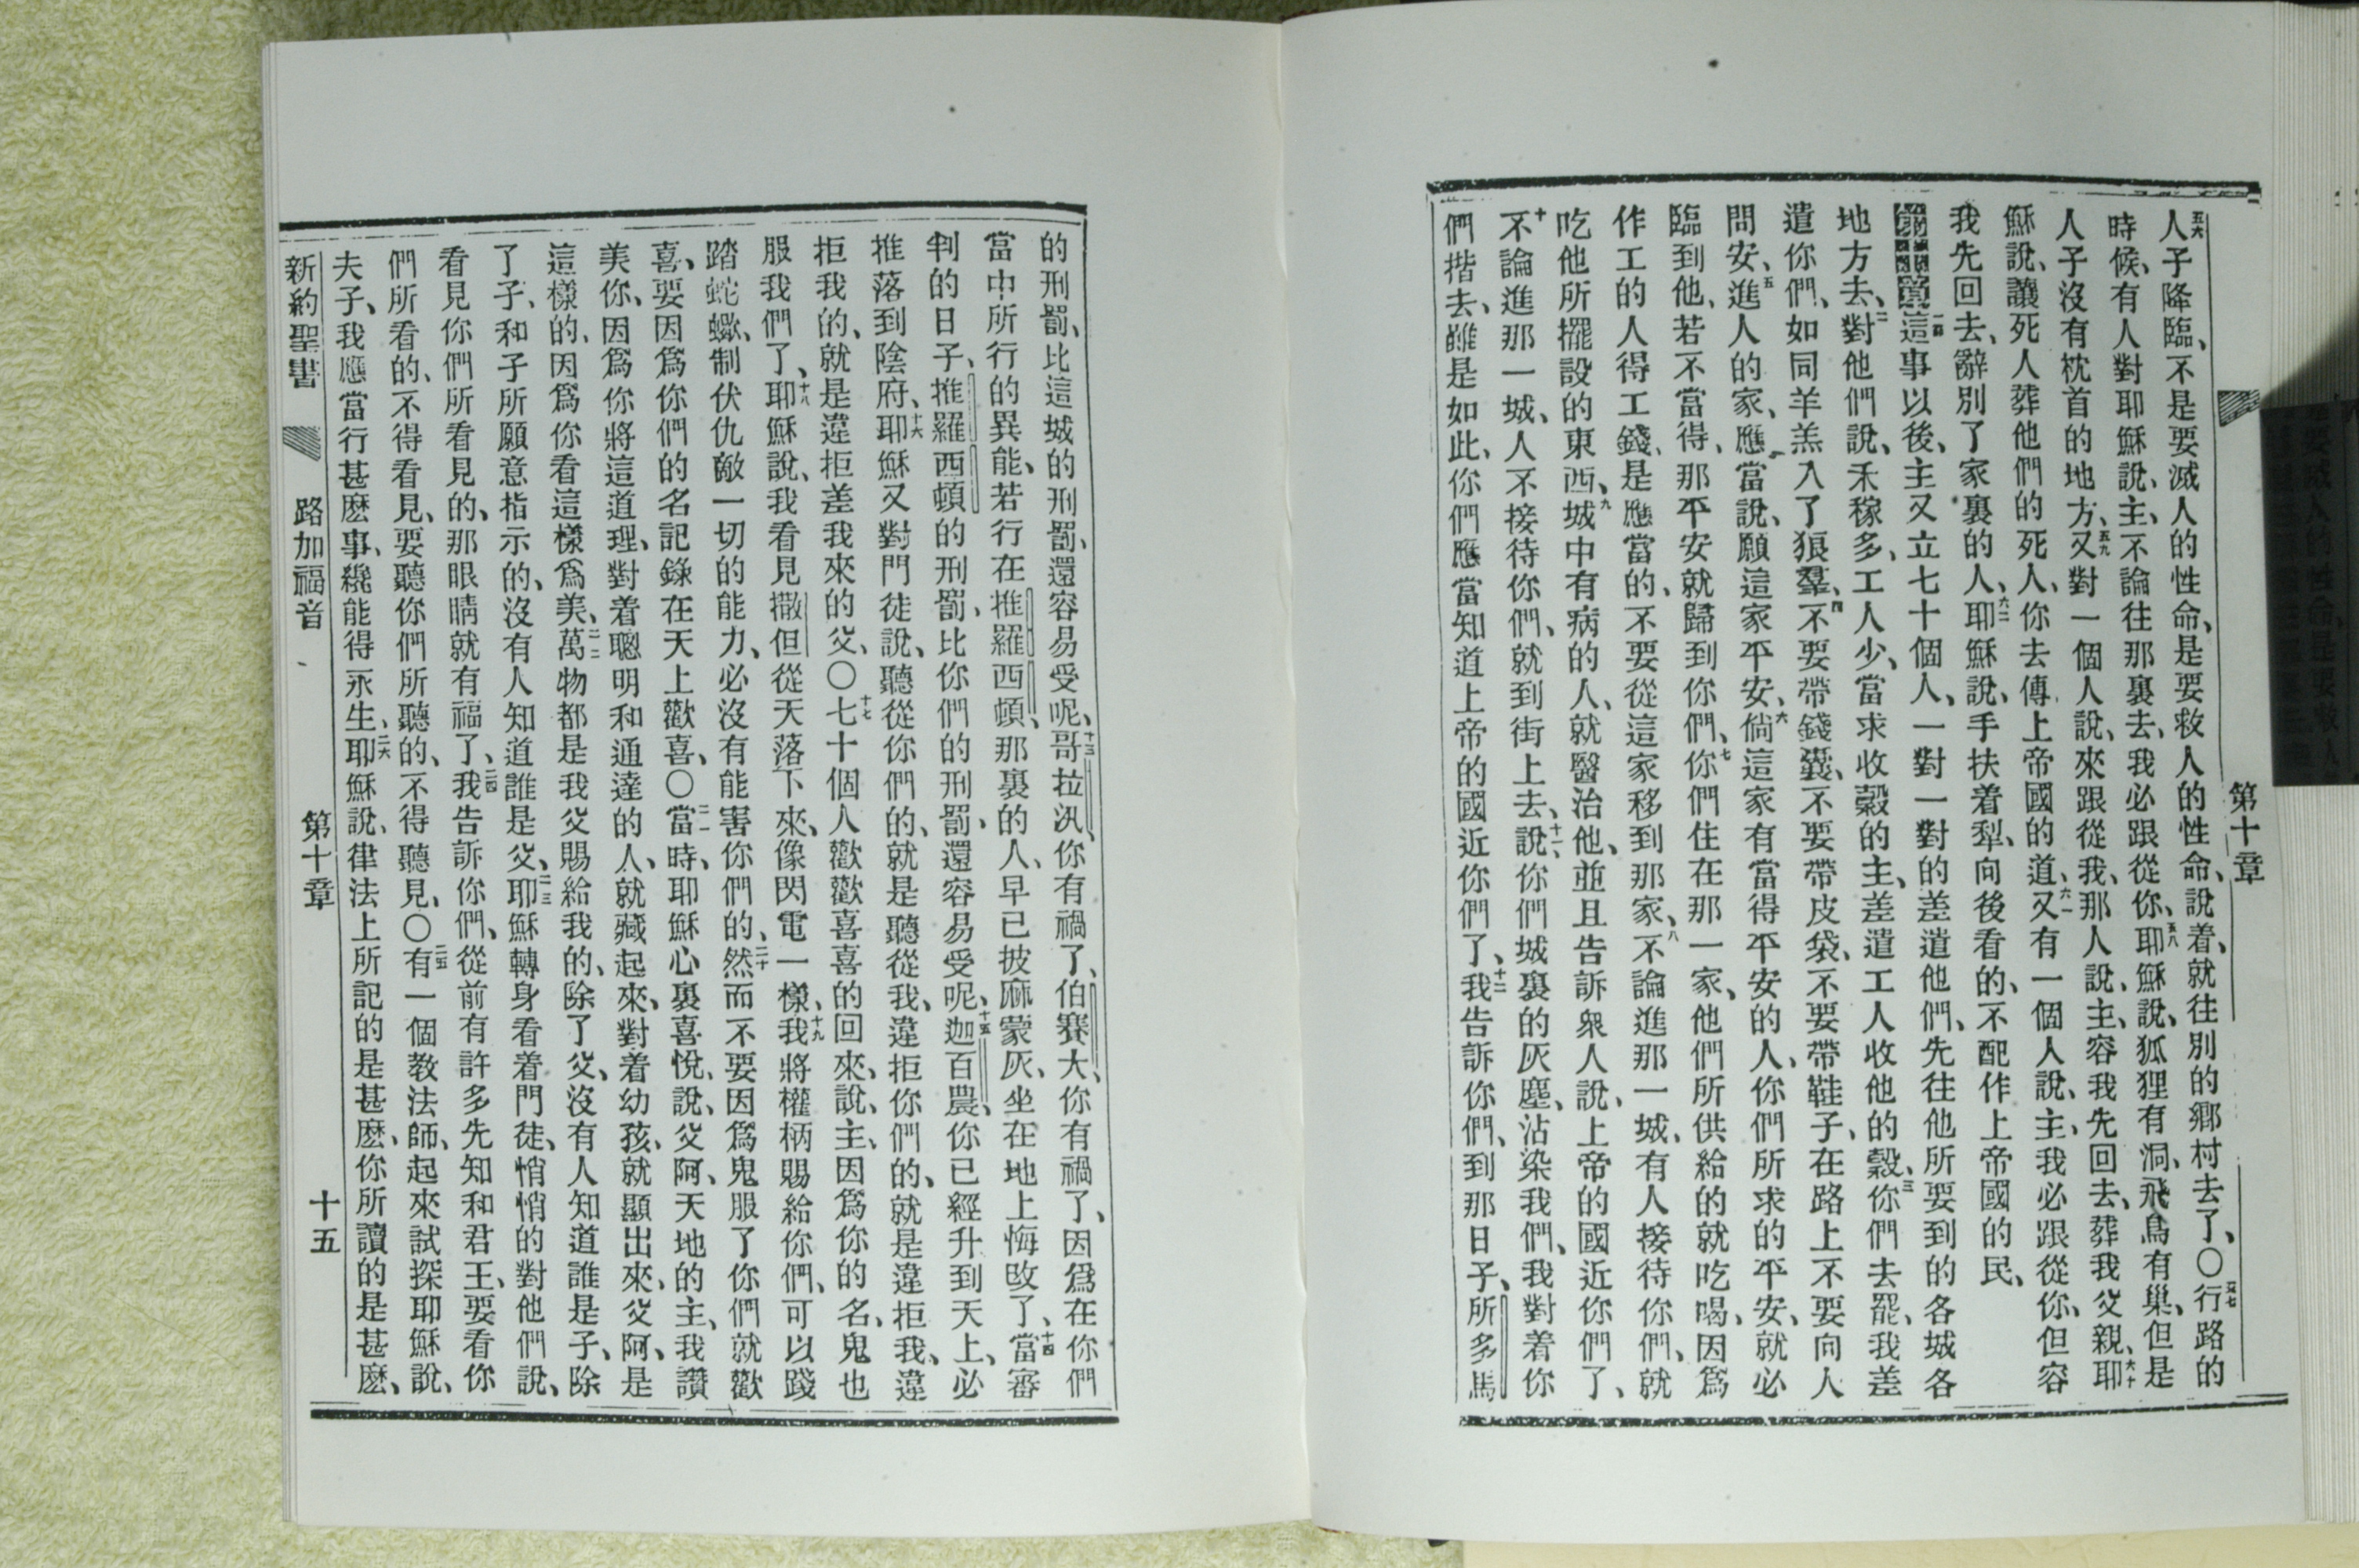 第十章
五六人子降臨、不是要滅人的性命、是要救人的性命、說着、就往別的鄉村去了、〇五七行路的
時候、有人對耶穌說、主、不論往那裏去、我必跟從你、五八耶穌說、狐狸有洞、飛鳥有巢、但是
人子沒有枕首的地方、五九又對一個人說、來跟從我、那人說、主、容我先回去、葬我父親、六十耶
穌說、讓死人葬他們的死人、你去傳上帝國的道、六一又有一個人說、主、我必跟從你、但容
我先回去、辭別了家裏的人、六二耶穌說、手扶着犁、向後看的、不配作上帝國的民、
第十章一節這事以後、主又立七十個人、一對一對的差遣他們、先往他所要到的各城各
地方去、二對他們說、禾稼多、工人少、當求收穀的主、差遣工人收他的穀、三你們去罷、我差
遣你們、如同羊羔入了狼羣、四不要帶錢囊、不要帶皮袋、不要帶鞋子、在路上不要向人
問安、五進人的家、應當說、願這家平安、六倘這家有當得平安的人、你們所求的平安、就必
臨到他、若不當得、那平安就歸到你們、七你們住在那一家、他們所供給的就吃喝、因爲
作工的人得工錢、是應當的、不要從這家移到那家、八不論進那一城、有人接待你們、就
吃他所擺設的東西、九城中有病的人、就醫治他、並且告訴衆人說、上帝的國近你們了、
十不論進那一城、人不接待你們、就到街上去、十一說、你們城裏的灰塵、沾染我們、我對着你
們揩去、雖是如此、你們應當知道上帝的國近你們了、十二我告訴你們、到那日子、所多馬
的刑罰、比這城的刑罰、還容易受呢、十三哥拉汛、你有禍了、伯賽大、你有禍了、因爲在你們
當中所行的異能、若行在推羅西頓、那裏的人、早已披麻蒙灰、坐在地上悔改了、十四當審
判的日子、推羅西頓的刑罰、比你們的刑罰、還容易受呢、十五迦百農、你已經升到天上、必
推落到陰府、十六耶穌又對門徒說、聽從你們的、就是聽從我、違拒你們的、就是違拒我、違
拒我的、就是違拒差我來的父、〇十七七十個人歡歡喜喜的回來、說、主、因爲你的名、鬼也
服我們了、十八耶穌說、我看見撒但從天落下來、像閃電一樣、十九我將權柄賜給你們、可以踐
踏蛇蠍、制伏仇敵一切的能力、必沒有能害你們的、二十然而不要因爲鬼服了你們就歡
喜、要因爲你們的名記錄在天上歡喜、〇二一當時、耶穌心裏喜悅、說、父阿、天地的主、我讚
美你、因爲你將這道理、對着聰明和通達的人、就藏起來、對着幼孩、就顯出來、父阿、是
這樣的、因爲你看這樣爲美、二二萬物都是我父賜給我的、除了父、沒有人知道誰是子、除
了子、和子所願意指示的、沒有人知道誰是父、二三耶穌轉身看着門徒、悄悄的對他們說、
看見你們所看見的、那眼睛就有福了、二四我告訴你們、從前有許多先知和君王、要看你
們所看的、不得看見、要聽你們所聽的、不得聽見、〇二五有一個教法師、起來試探耶穌說、
夫子、我應當行甚麽事、纔能得永生、二六耶穌說、律法上所記的是甚麽、你所讀的是甚麽、
新約聖書 路加福音 第十章 十五